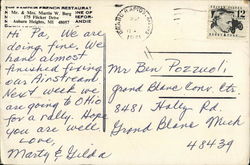 FRENCH RESTAURANT
Mr. & Mrs. Martin W.
175 Flicker Drive
Auburn Heights, MI 48057
Hi Pa, We are
doing fine. We
have almost
finished fixing
our Airstream
Next week we
are going to Ohio
for a rally. Hope
you are well
Love,
Marty & Gilda
Mr Ben Pozzuoli
Grand Blanc Conv. Ctr
8481 Holly Rd.
Grand Blanc Mich
48439